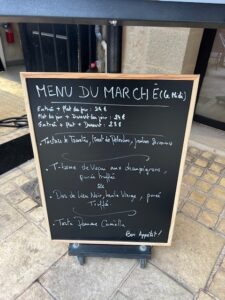 MENU DU MARCHÉ (Le Midi)
Entrée + Plat du jour : 24 €
Plat du jour + Dessert du jour : 24 €
Entrée + Plat + Dessert : 28 €
Tartare de Tomates,
T-bone de Veau aux champignons,
purée truffée
ou
Dos de Lieu Noir, sauce Vierge, purée
Truffée
Tarte Pomme Cannelle
Bon Appétit !